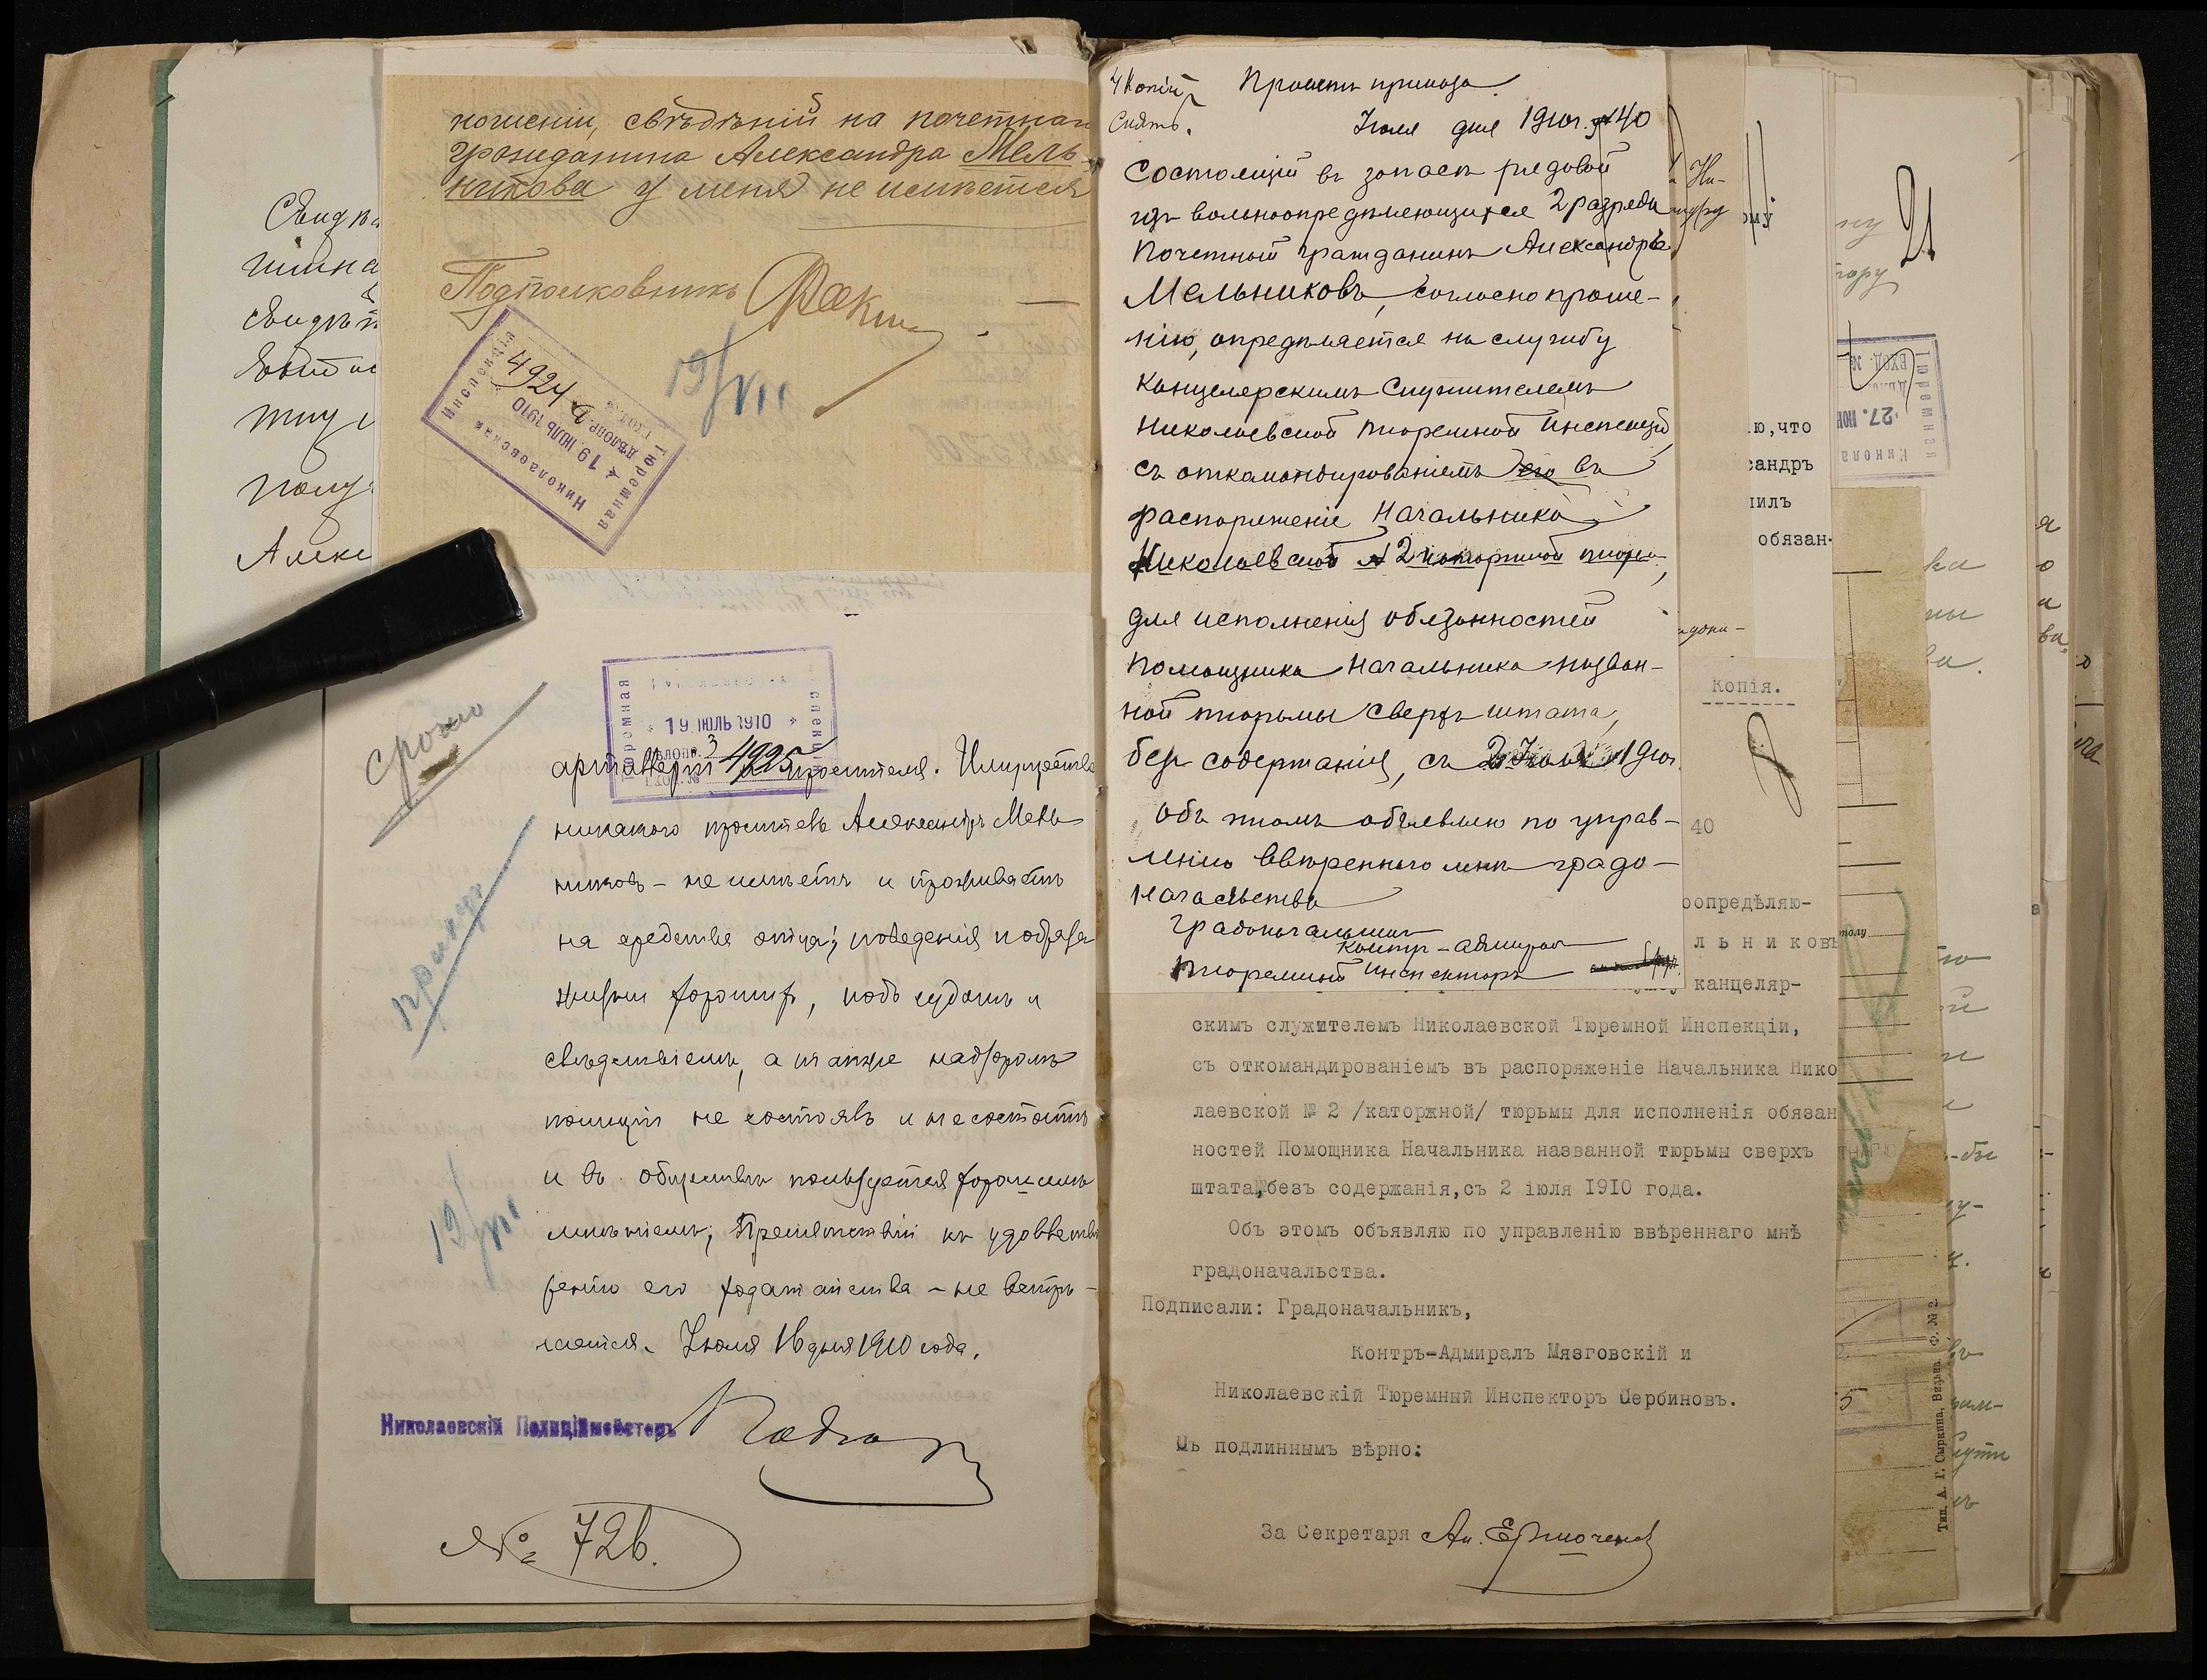 Свидѣ
гимна
свидѣт
Алекс
ношеніи, свѣдѣній на почетнаго
гражданина Александра Мель-
никова у меня не имѣется
Подполковникъ
19/VII
Николаевская
Тюремная
Инспекція
4924
19 ІЮЛЬ 1910
срочно
Тюремная
19 ІЮЛЬ 1910
4925
просителя. Имущества
никакого проситель Александръ Мель-
никовъ - не имѣетъ и проживаетъ
на средства отца; поведенія и образа
жизни хорошихъ, подъ судомъ и
слѣдствіемъ, а также надзоромъ
полиціи не состоялъ и не состоитъ
и въ обществѣ пользуется хорошимъ
мнѣніемъ; Препятствій къ удовлетво
ренію его ходатайства - не встрѣ-
чается. Іюля 16 дня 1910 года.
19/VII
Николаевскій Полиціймейстеръ
№ 726.
4 копіи
Снять.
Проектъ приказа.
Іюля дня 1910 г. № 40
Состоящій въ запасѣ рядовой
изъ вольноопредѣляющихся 2 разряда
Почетный гражданинъ Александръ
Мельниковъ, согласно проше-
нію, опредѣляется на службу
канцелярскимъ служителемъ
Николаевской тюремной Инспекціи,
съ откомандированіемъ его въ
распоряженіе Начальника
Николаевской № 2 каторжной тюрьмы,
для исполненія обязанностей
Помощника Начальника назван-
ной тюрьмы сверхъ штата,
безъ содержанія, съ 2 Іюля 1910 г.
Объ этомъ объявляю по управ-
ленію ввѣреннаго мнѣ градо-
начальства
Градоначальникъ
Контр-адмиралъ
Тюремный Инспекторъ
ю,что
сандръ
обязан-
Копія.
40
оопредѣляю-
льниковъ
канцеляр-
скимъ служителемъ Николаевской Тюремной Инспекціи,
съ откомандированіемъ въ распоряженіе Начальника Нико
лаевской № 2 /каторжной/ тюрьмы для исполненія обязан
ностей Помощника Начальника названной тюрьмы сверхъ
штата,безъ содержанія,съ 2 іюля 1910 года.
Объ этомъ объявляю по управленію ввѣреннаго мнѣ
градоначальства.
Подписали: Градоначальникъ,
Контръ-Адмиралъ Мязговскій и
Николаевскій Тюремный Инспекторъ Сербиновъ.
Съ подлиннымъ вѣрно:
За Секретаря
21
Тюремная
27. ІЮН
Никола
Тип. А. Г. Сыркина, Вильна. Ф. № 2